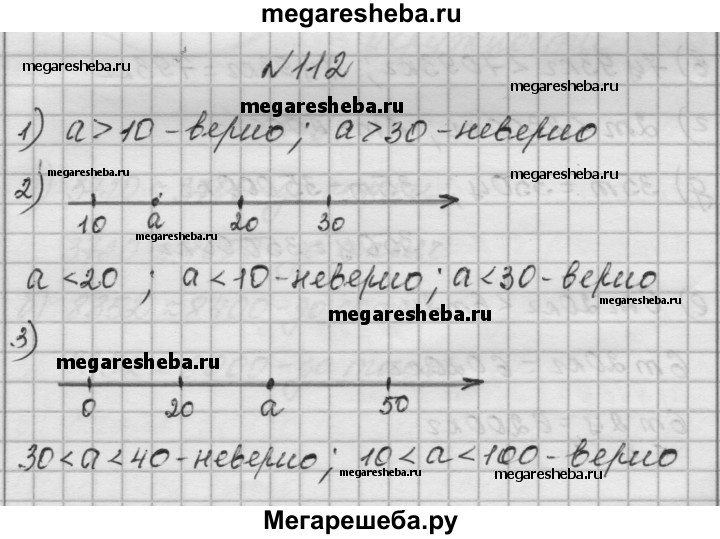 megaresheba.ru
megaresheba.ru
N 112
megaresheba.ru
megaresheba.ru
1) a > 10 - верно; a > 30 - неверно
megaresheba.ru
megaresheba.ru
2)
10 a 20 30
megaresheba.ru
a < 20 ; a < 10 - неверно; a < 30 - верно
megaresheba.ru
megaresheba.ru
3)
megaresheba.ru
0 20 a 50
30 < a < 40 - неверно; 10 < a < 100 - верно
megaresheba.ru
megaresheba.ru
Мегарешеба.ру